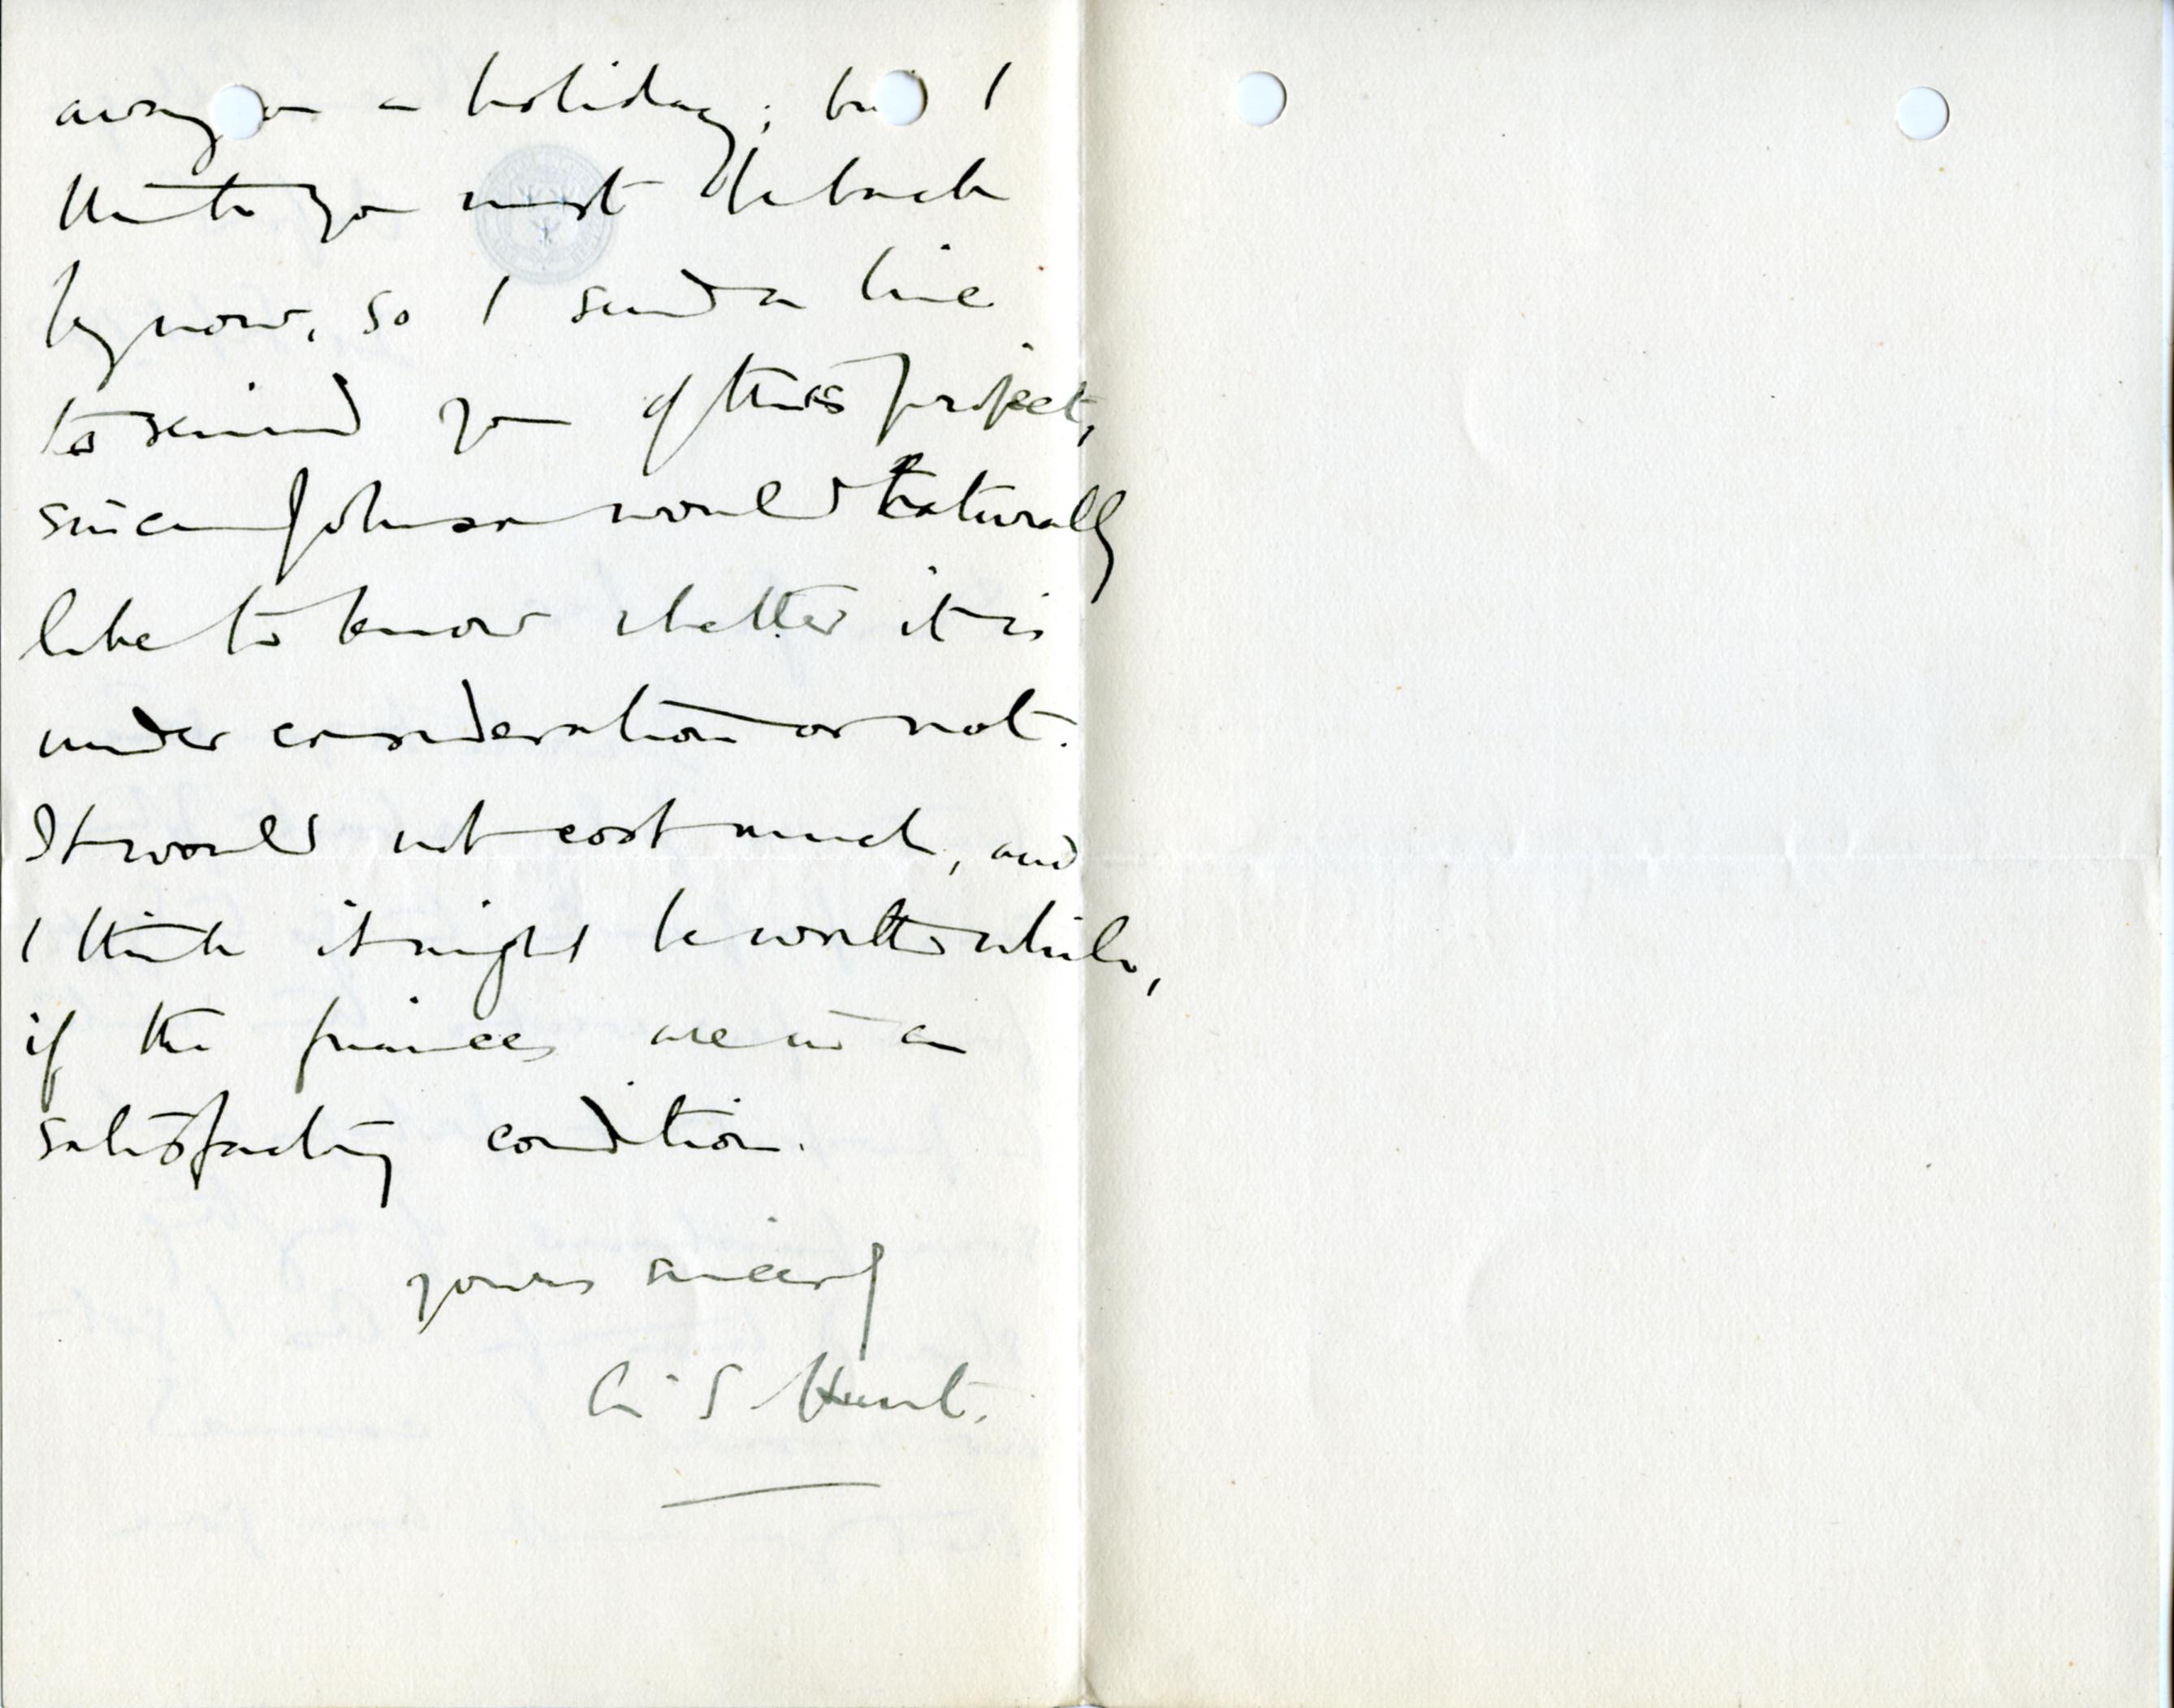 away on a holiday; but I
think you must be back
by now, so I send a line
to remind you of this project,
since Johnson would naturally
like to know whether it is
under consideration or not.
It would not cost much, and
I think it might be worth while,
if the finances are in a
satisfactory condition.
yours sincerely
A S Hunt.